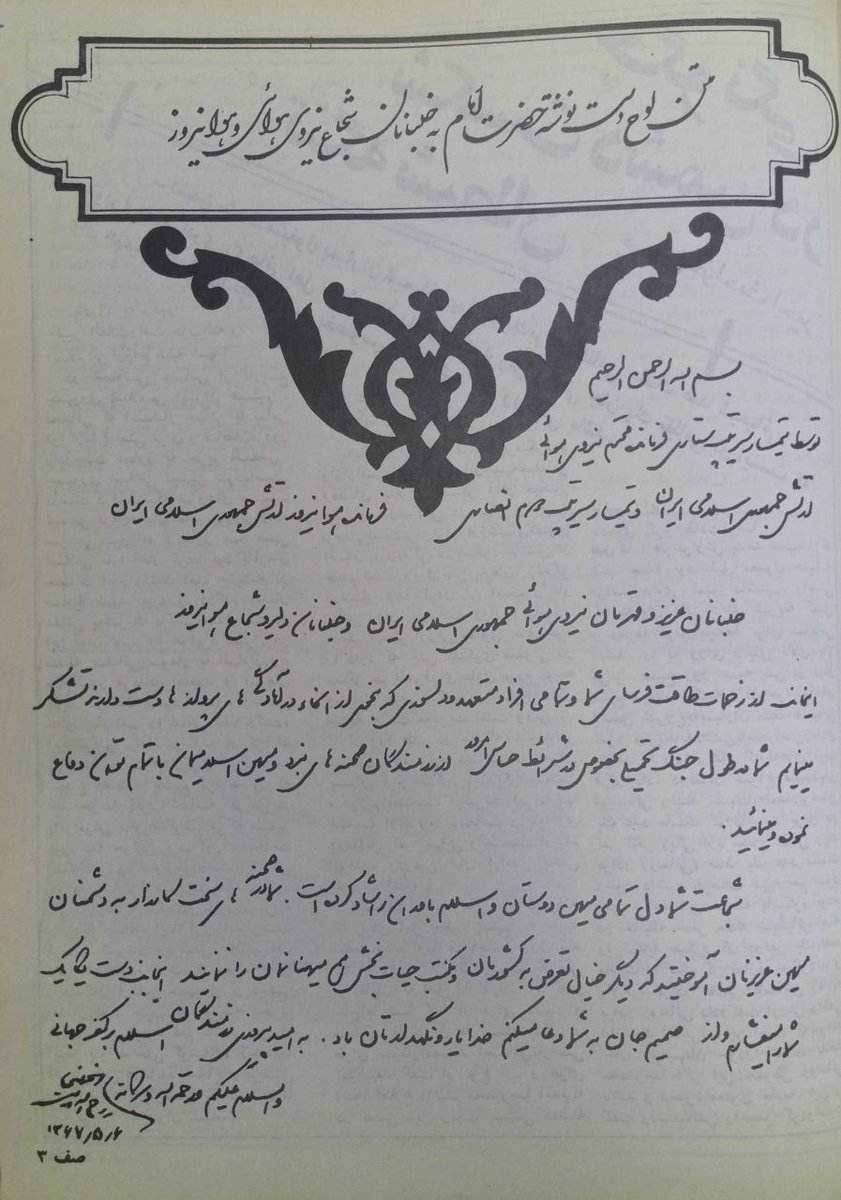 متن لوح دست نوشته حضرت امام به خلبانان شجاع نیروی هوائی و هوانیروز
بسم الله الرحمن الرحیم
توسط تیمسار سرتیپ ستاری فرمانده محترم نیروی هوائی
ارتش جمهوری اسلامی ایران و تیمسار سرتیپ محرم انصاری فرمانده هوانیروز ارتش جمهوری اسلامی ایران
خلبانان عزیز و قهرمان نیروی هوائی جمهوری اسلامی ایران و خلبانان دلیر و شجاع هوانیروز
اینجانب از زحمات طاقت فرسای شما و تمامی افراد متعهد و دلسوزی که بنحوی از انحاء در آمادگی های پروازها دست دارند تشکر
مینمایم شما در طول جنگ تحمیلی بخصوص در شرائط حساس امروز از رزمندگان صحنه های نبرد و میهن اسلامیمان با تمام توان دفاع
نموده و مینمائید.
شجاعت شما دل تمامی میهن دوستان و اسلام باوران را شاد کرده است. شما در صحنه های سخت کارزار به دشمنان
میهن عزیزمان آموختید که دیگر خیال تعرض به کشورمان و مکتب حیات بخش میهنمان را ننمایند اینجانب دست یکایک
شما را میفشارم و از صمیم جان به شما دعا میکنم خدا یار و نگهدارتان باد. به امید پیروزی رزمندگان اسلام بر کفر جهانی
والسلام علیکم و رحمة الله و برکاته
روح الله الموسوی الخمینی
۱۳۶۷/۵/۶
صف ۳